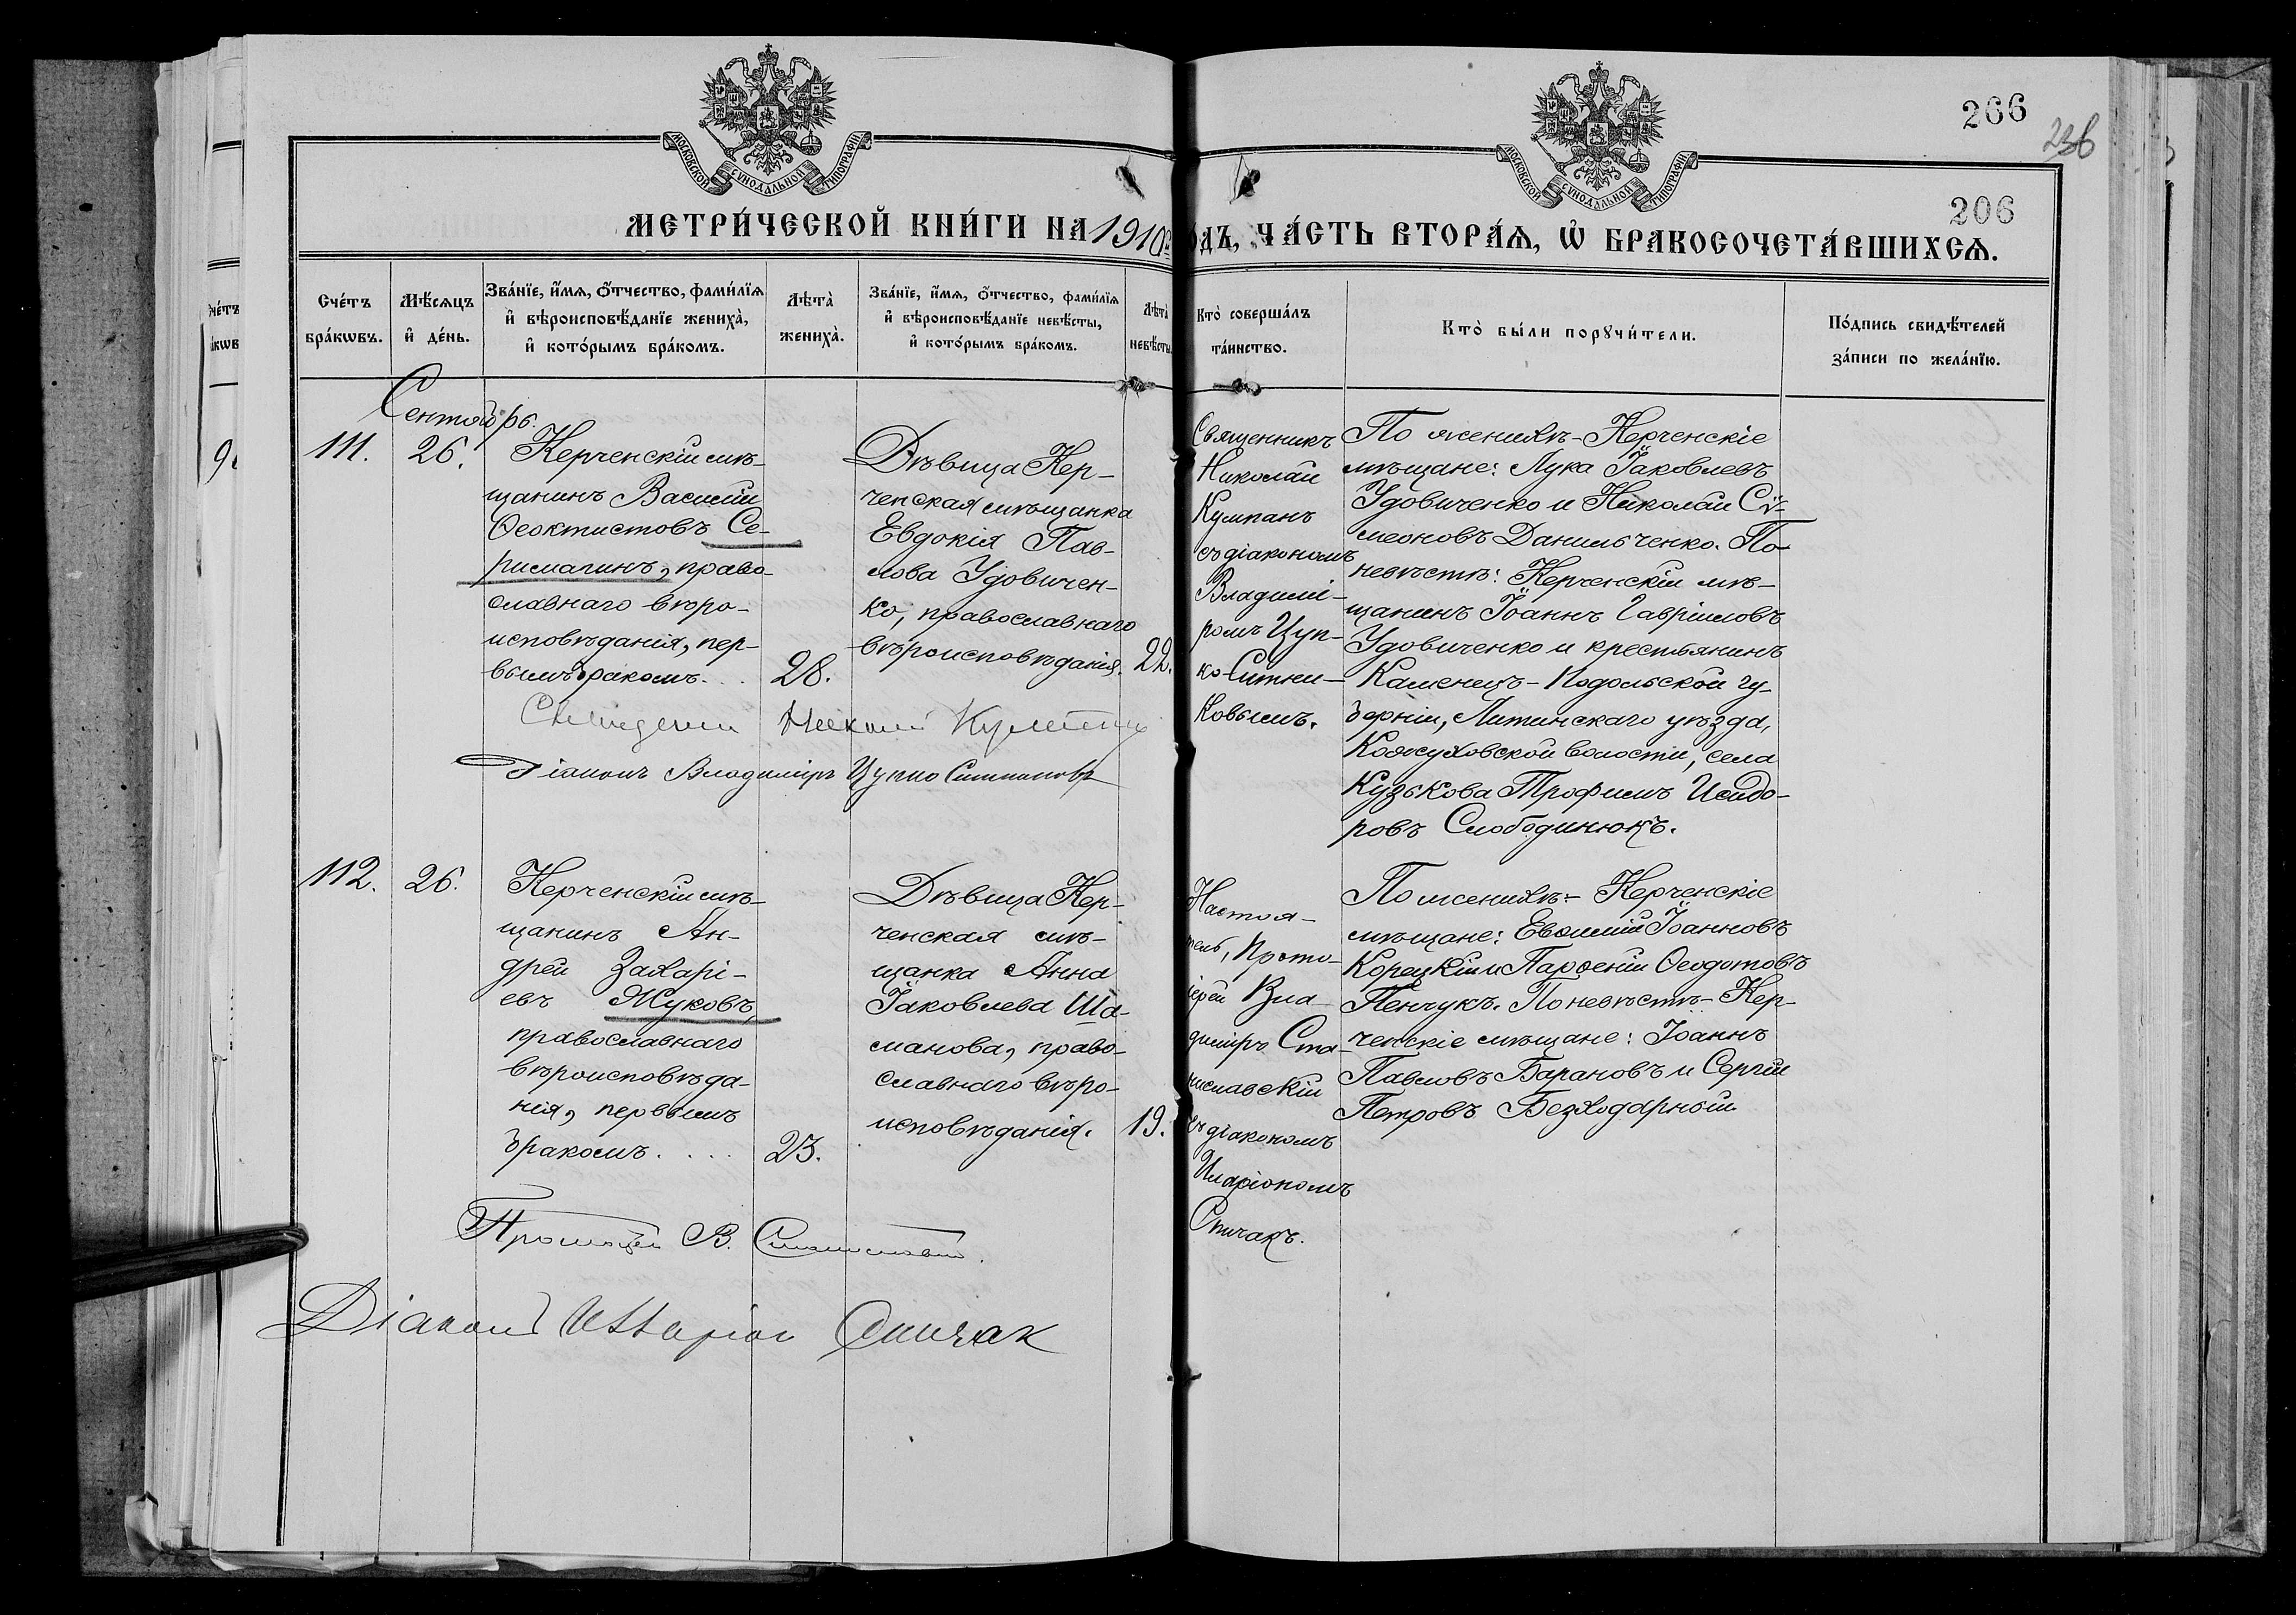 МОСКОВСКОЙ СѴНОДАЛЬНОЙ ТИПОГРАФІИ
МОСКОВСКОЙ СѴНОДАЛЬНОЙ ТИПОГРАФІИ
266
236
206
МЕТРИ́ЧЕСКОЙ КНИ́ГИ НА 1910 г
ОДЪ, ЧА́СТЬ ВТОРА́Ѧ, Ѡ҆ БРАКОСОЧЕТА́ВШИХСѦ.
Сче́тъ
бра́кѡвъ.
Мѣ́сѧцъ
и҆ де́нь.
Зва́нїе, и҆́мѧ, ѻ҆́тчество, фами́лїѧ
и҆ вѣроисповѣ́данїе жениха̀,
и҆ кото́рымъ бра́комъ.
Лѣта̀
жениха̀.
Зва́нїе, и҆́мѧ, ѻ҆́тчество, фами́лїѧ
и҆ вѣроисповѣ́данїе невѣ́сты,
и҆ кото́рымъ бра́комъ.
Лѣта̀
невѣ́сты
Кто̀ соверша́лъ
та́инство.
Кто̀ бы́ли порꙋчи́тели.
По́дпись свидѣ́телей
за́писи по жела́нїю.
Сентябрь.
111.
26.
Керченскій мѣ-
щанинъ Василій
Ѳеоктистовъ Се-
римагинъ, право-
славнаго вѣро-
исповѣданія, пер-
вымъ бракомъ. . .
28.
Дѣвица Кер-
ченская мѣщанка
Евдокія Пав-
лова Удовичен-
ко, православнаго
вѣроисповѣданія.
22.
Священникъ
Николай
Кумпанъ
съ діакономъ
Владимі-
ромъ Цуп-
ко-Ситни-
ковымъ.
По женихѣ - Керченскіе
мѣщане: Лука Іаковлевъ
Удовиченко и Николай Сѵ-
меоновъ Данильченко. По
невѣстѣ: Керченскій мѣ-
щанинъ Іоаннъ Гавріиловъ
Удовиченко и крестьянинъ
Каменецъ-Подольской гу-
берніи, Литинскаго уѣзда,
Кожуховской волости, села
Кузькова Трофимъ Исидо-
ровъ Слободинюкъ.
Священникъ Николай Кумпанъ
Діаконъ Владиміръ Цупко Ситниковъ
112.
26.
Керченскій мѣ-
щанинъ Ан-
дрей Захарі-
евъ Жуковъ,
православнаго
вѣроисповѣда-
нія, первымъ
бракомъ. . . .
23.
Дѣвица Кер-
ченская мѣ-
щанка Анна
Іаковлева Ша-
манова, право-
славнаго вѣро-
исповѣданія.
19.
Настоя-
тель, Прото-
іерей Вла-
диміръ Ста-
ниславскій
съ діакономъ
Иларіономъ
Спичакъ.
По женихѣ - Керченскіе
мѣщане: Евѳимій Іоанновъ
Корецкій и Парѳеній Ѳеодотовъ
Пенчукъ. По невѣстѣ - Кер-
ченскіе мѣщане: Іоаннъ
Павловъ Барановъ и Сергій
Петровъ Безходарный
Протоіерей В. Станиславскій.
Діаконъ Иларіон Спичак